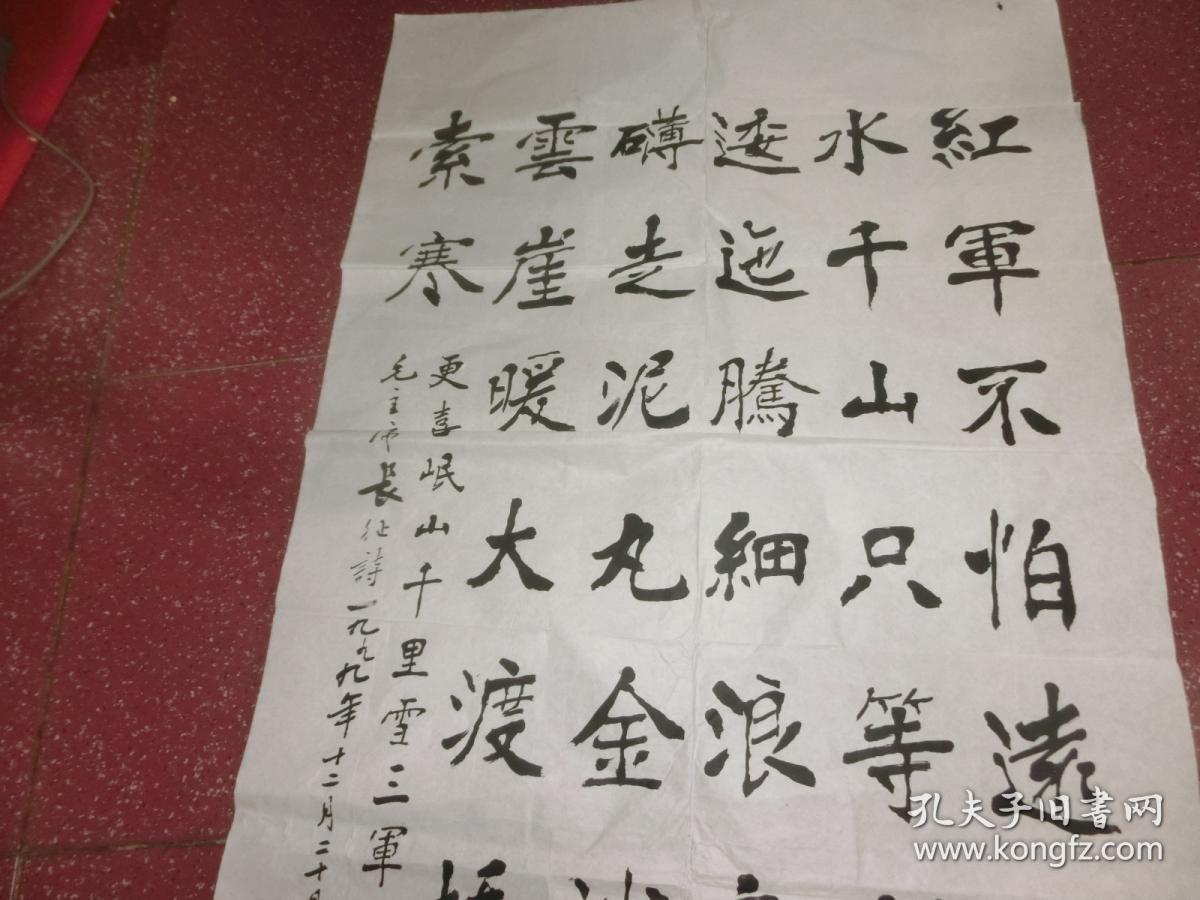 紅軍不怕遠
水千山只等
逶迤騰細浪
礴走泥丸金
雲崖暖大渡
索寒
更喜岷山千里雪三軍
毛主席長征詩一九九九年十二月二十
孔夫子旧书网
www.kongfz.com